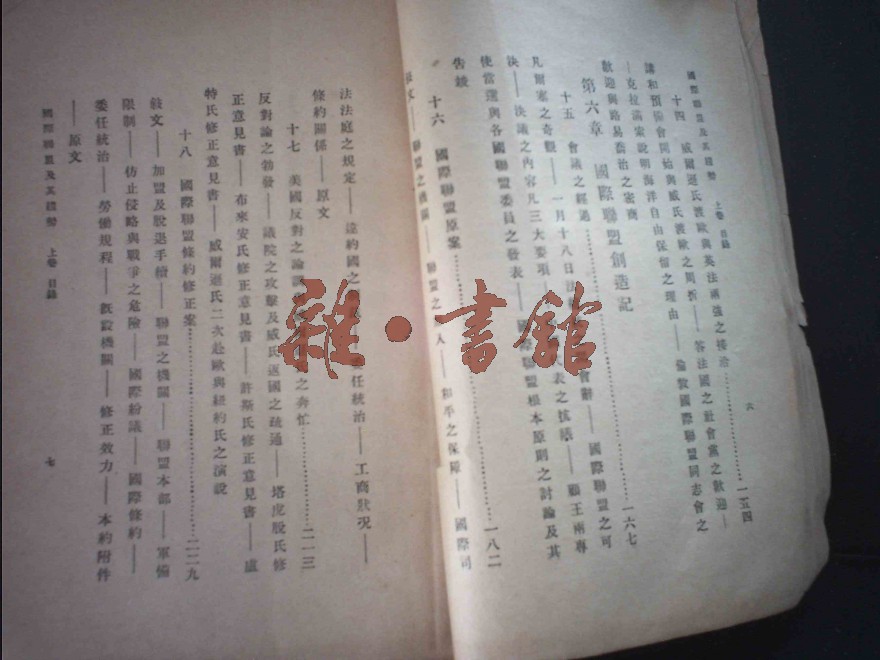 國際聯盟及其趨勢 上卷 目錄 六
十四 威爾遜氏渡歐與英法兩強之接洽 一五四
講和預備會開始與威氏渡歐之周折——答法國之社會黨之歡迎——
——克拉滿索說明海洋自由保留之理由——倫敦國際聯盟同志會之
歡迎與路易喬治之密商
第六章 國際聯盟創造記
十五 會議之經過 一六七
凡爾塞之奇觀——一月十八日法 會辭——國際聯盟之可
決——決議之內容凡三大要項 代表之抗議——顧王兩專
使當選與各國聯盟委員之發表——國際聯盟根本原則之討論及其
告竣
十六 國際聯盟原案 一八二
敍文——聯盟之機關——聯盟之 人——和平之保障——國際司
法法庭之規定——違約國之 委任統治——工商狀況——
條約關係——原文
十七 美國反對之論 之奔忙 二一三
反對論之勃發——議院之攻擊及威氏返國之疏通——塔虎脫氏修
正意見書——布來安氏修正意見書——許斯氏修正意見書——盧
特氏修正意見書——威爾遜氏二次赴歐與紐約氏之演說
十八 國際聯盟條約修正案 二二九
敍文——加盟及脫退手續——聯盟之機關——聯盟本部——軍備
限制——仿止侵略與戰爭之危險——國際紛議——國際條約——
委任統治——勞働規程——旣設機關——修正效力——本約附件
——原文
國際聯盟及其趨勢 上卷 目錄 七
雜·書館